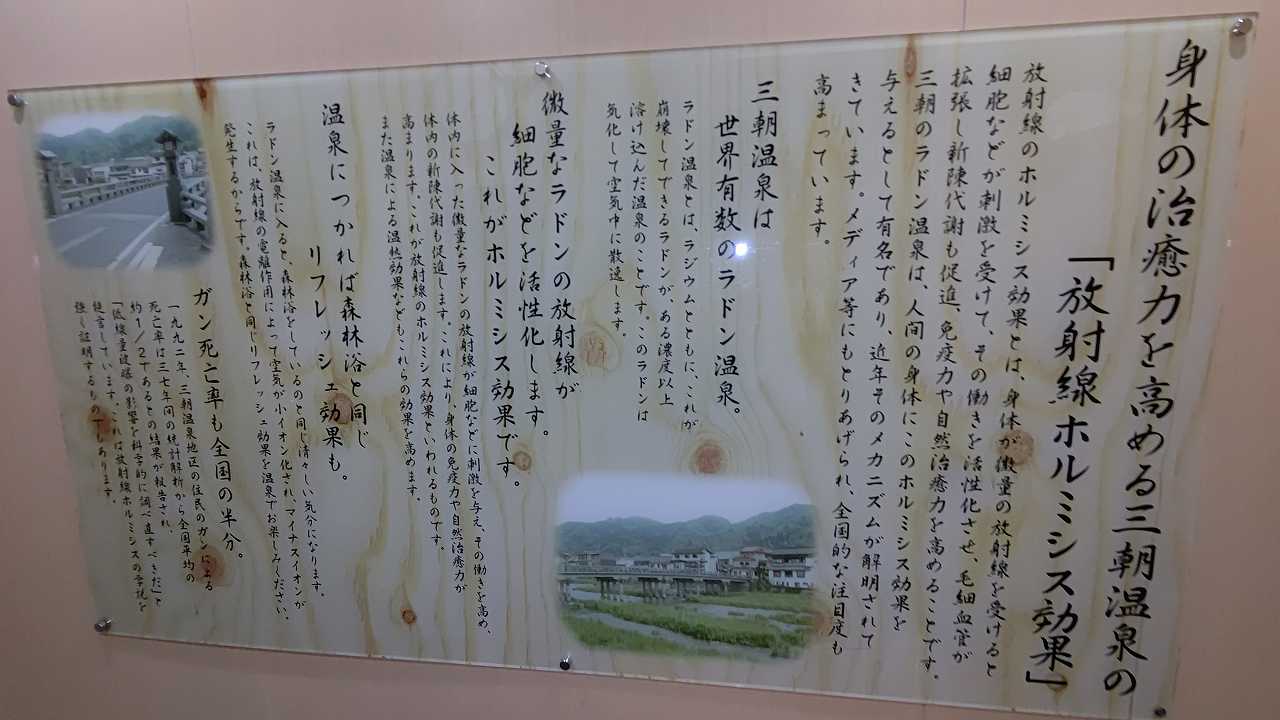 身体の治癒力を高める三朝温泉の
「放射線ホルミシス効果」
放射線のホルミシス効果とは、身体が微量の放射線を受けると
細胞などが刺激を受けて、その働きを活性化させ、毛細血管が
拡張し新陳代謝も促進、免疫力や自然治癒力を高めることです。
三朝のラドン温泉は、人間の身体にこのホルミシス効果を
与えるとして有名であり、近年そのメカニズムが解明されて
きています。メディア等にもとりあげられ、全国的な注目度も
高まっています。
三朝温泉は
世界有数のラドン温泉。
ラドン温泉とは、ラジウムとともに、これが
崩壊してできるラドンが、ある濃度以上
溶け込んだ温泉のことです。このラドンは
気化して空気中に散逸します。
微量なラドンの放射線が
細胞などを活性化します。
これがホルミシス効果です。
体内に入った微量なラドンの放射線が細胞などに刺激を与え、その働きを高め、
体内の新陳代謝も促進します。これにより、身体の免疫力や自然治癒力が
高まります。これが放射線のホルミシス効果といわれるものです。
また温泉による温熱効果などもこれらの効果を高めます。
温泉につかれば森林浴と同じ
リフレッシュ効果も。
ラドン温泉に入ると、森林浴をしているのと同じ清々しい気分になります。
これは、放射線の電離作用によって空気が小イオン化され、マイナスイオンが
発生するからです。森林浴と同じリフレッシュ効果を温泉でお楽しみください。
ガン死亡率も全国の半分。
一九九二年、三朝温泉地区の住民のガンによる
死亡率は三七年間の統計解析から全国平均の
約1/2であるとの結果が報告され、
「低線量被曝の影響を科学的に調べ直すべきだ」と
提言しています。これは放射線ホルミシスの学説を
強く証明するものでもあります。